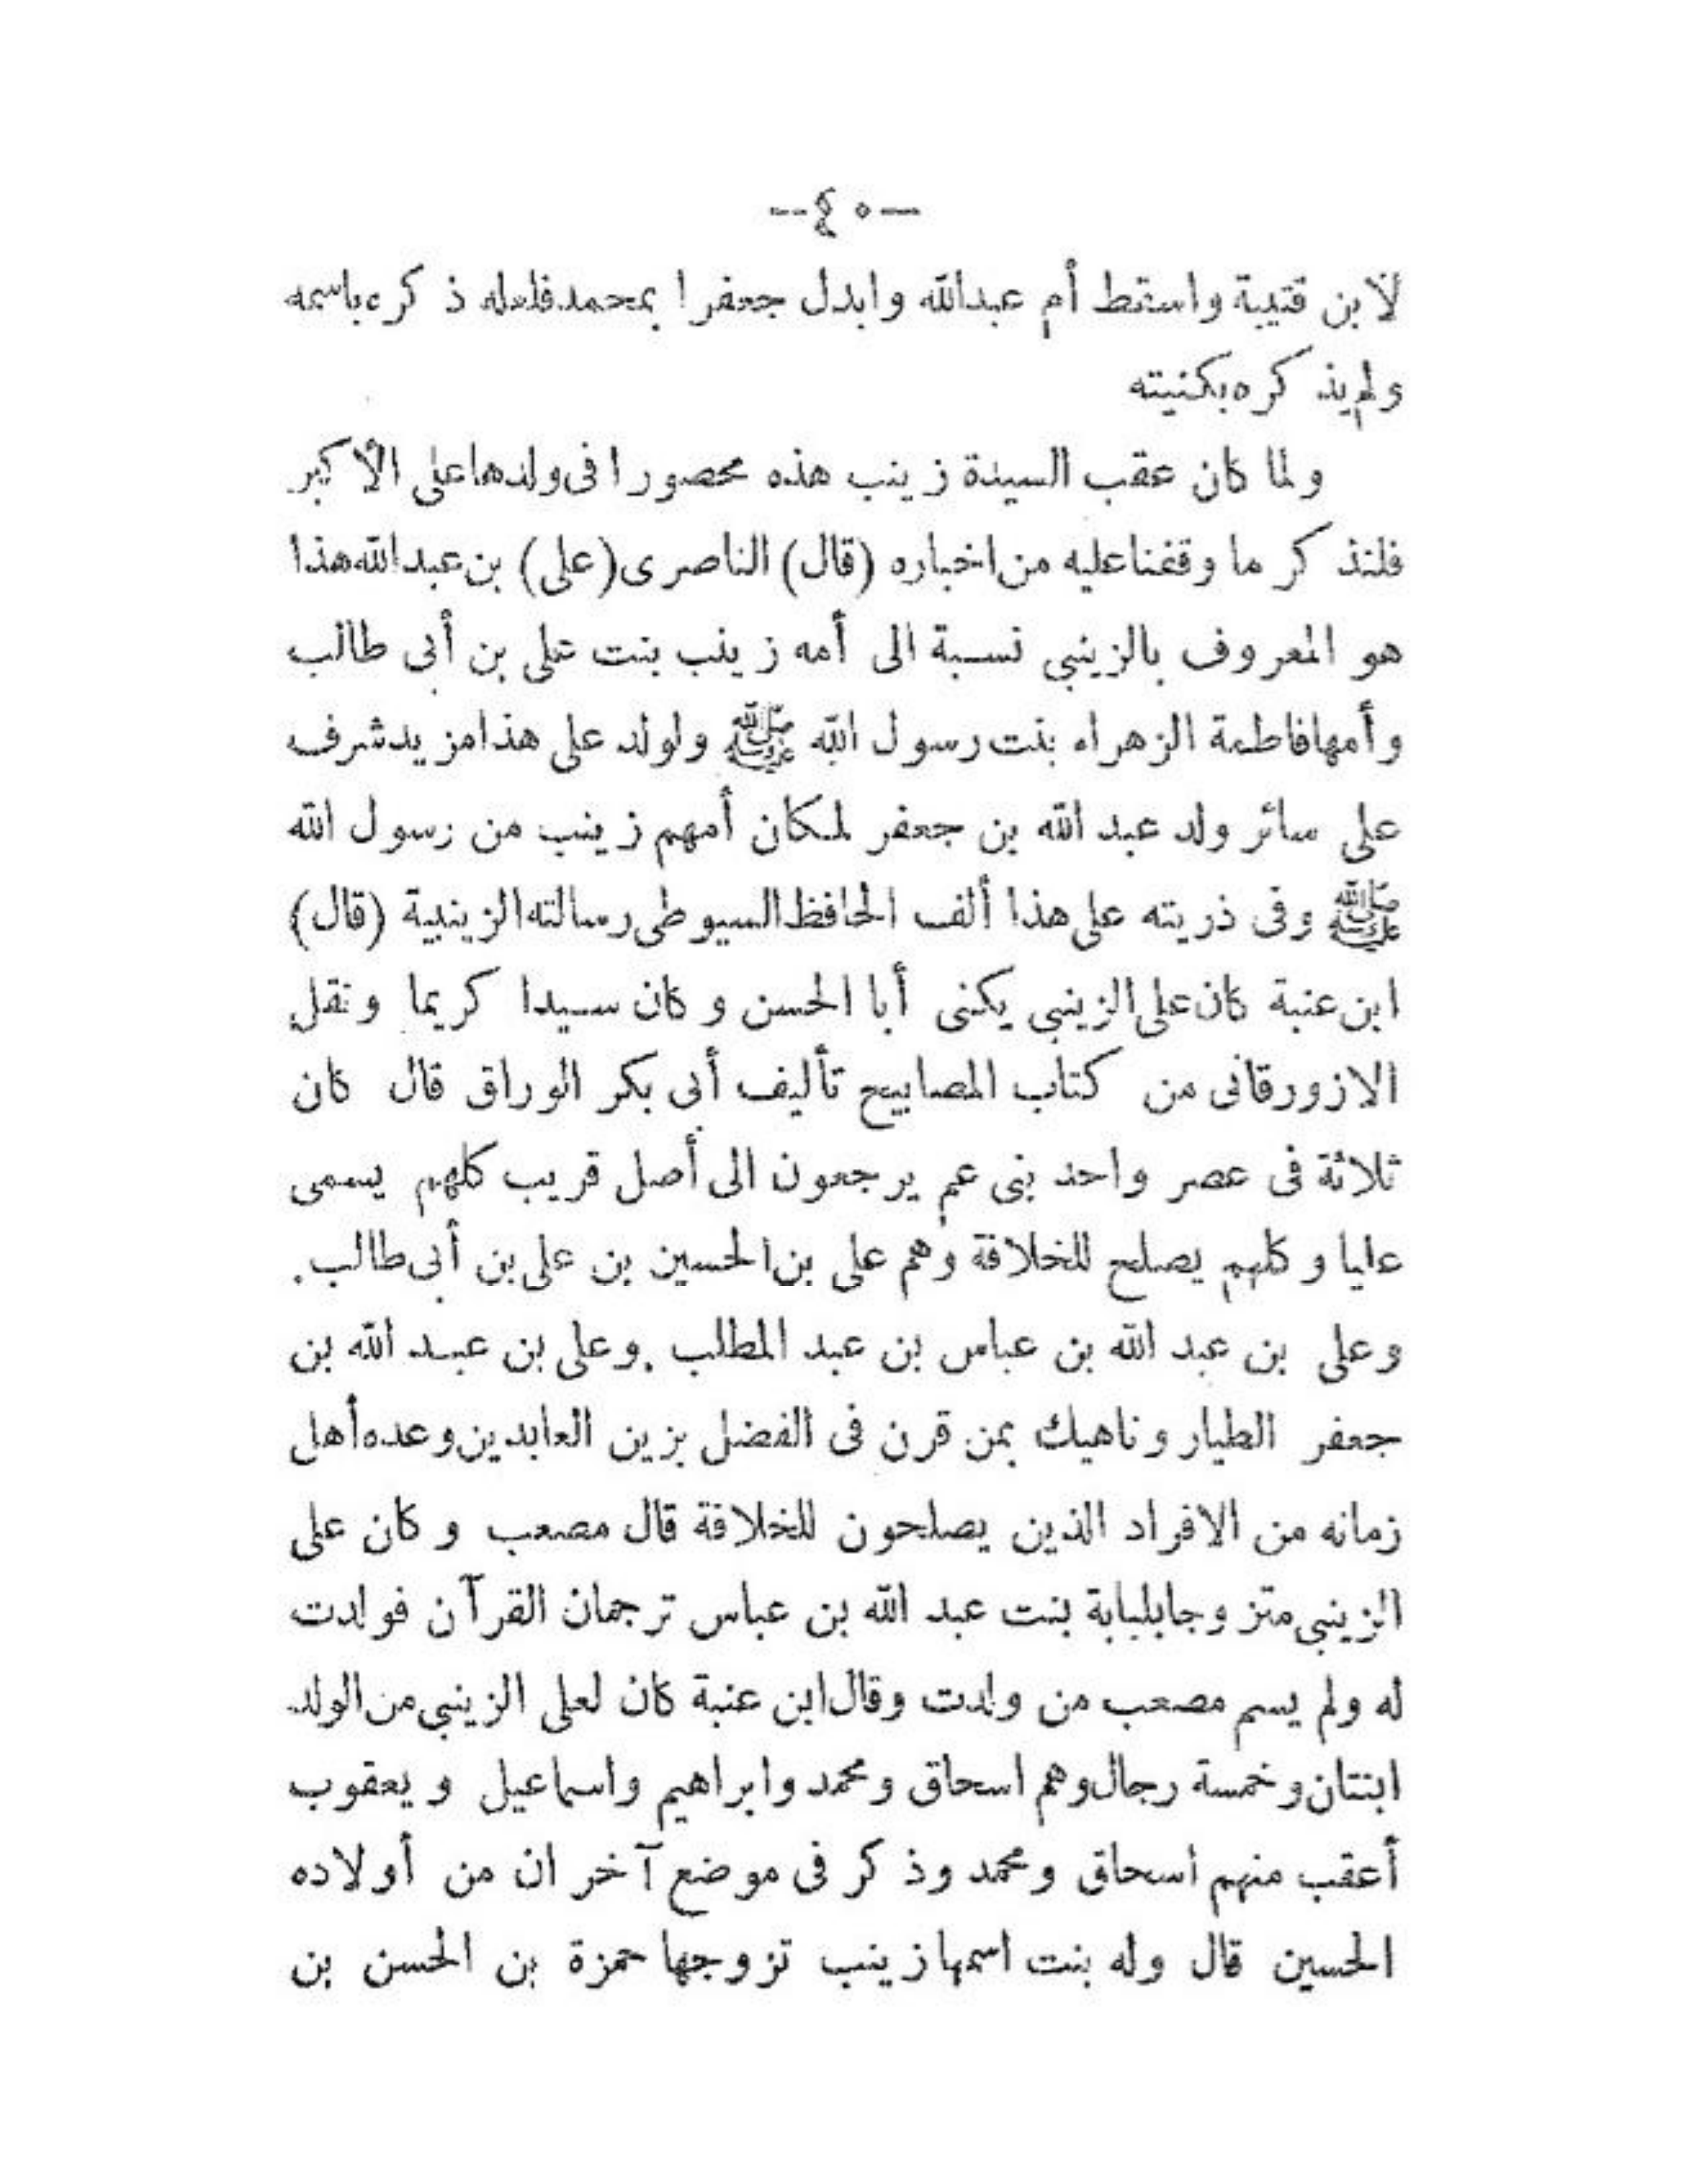 --٤٠--
لابن قتيبة واسقط أم عبدالله وابدل جعفرا بمحمد فلعله ذكره باسمه
ولم يذكره بكنيته
ولما كان عقب السيدة زينب هذه محصورا فى ولدها على الأكبر
فلنذكر ما وقفنا عليه من اخباره (قال) الناصرى (على) بن عبدالله هذا
هو المعروف بالزينبى نسبة الى أمه زينب بنت على بن أبى طالب
وأمها فاطمة الزهراء بنت رسول الله ﷺ ولولد على هذا مزيد شرف
على سائر ولد عبد الله بن جعفر لمكان أمهم زينب من رسول الله
ﷺ وفى ذريته على هذا ألف الحافظ السيوطى رسالته الزينبية (قال)
ابن عنبة كان على الزينبى يكنى أبا الحسن وكان سيدا كريما ونقل
الازورقانى من كتاب المصابيح تأليف أبى بكر الوراق قال كان
ثلاثة فى عصر واحد بنى عم يرجعون الى أصل قريب كلهم يسمى
عليا وكلهم يصلح للخلافة وهم على بن الحسين بن على بن أبى طالب.
وعلى بن عبد الله بن عباس بن عبد المطلب .وعلى بن عبد الله بن
جعفر الطيار وناهيك بمن قرن فى الفضل بزين العابدين وعده أهل
زمانه من الافراد الذين يصلحون للخلافة قال مصعب وكان على
الزينبى متزوجا بلبابة بنت عبد الله بن عباس ترجمان القرآن فولدت
له ولم يسم مصعب من ولدت وقال ابن عنبة كان لعلى الزينبى من الولد
ابنتان وخمسة رجال وهم اسحاق ومحمد وابراهيم واسماعيل ويعقوب
أعقب منهم اسحاق ومحمد وذكر فى موضع آخر ان من أولاده
الحسين قال وله بنت اسمها زينب تزوجها حمزة بن الحسن بن